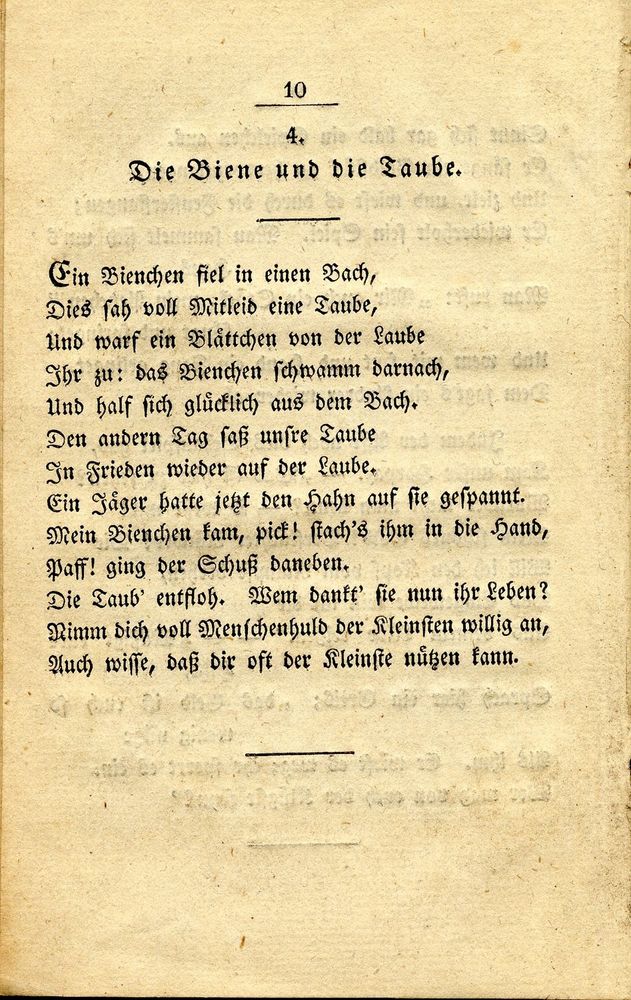 10
4.
Die Biene und die Taube.
Ein Bienchen fiel in einen Bach,
Dies sah voll Mitleid eine Taube,
Und warf ein Blättchen von der Laube
Ihr zu: das Bienchen schwamm darnach,
Und half sich glücklich aus dem Bach.
Den andern Tag saß unsre Taube
In Frieden wieder auf der Laube.
Ein Jäger hatte jetzt den Hahn auf sie gespannt.
Mein Bienchen kam, pick! stach's ihm in die Hand,
Paff! ging der Schuß daneben.
Die Taub' entfloh. Wem dankt' sie nun ihr Leben?
Nimm dich voll Menschenhuld der Kleinsten willig an,
Auch wisse, daß dir oft der Kleinste nützen kann.